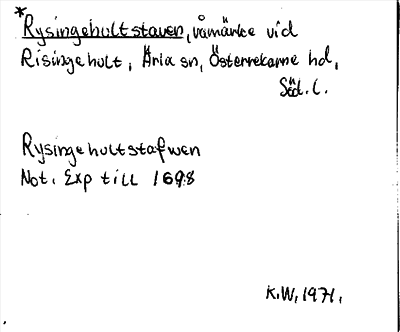 *Rysingehultstaven, råmärke vid
Risingehult, Äria sn, Österrekarne hd,
Söd. l.
Rysingehultstafwen
Not. Exp till 1698
K.W. 1971.